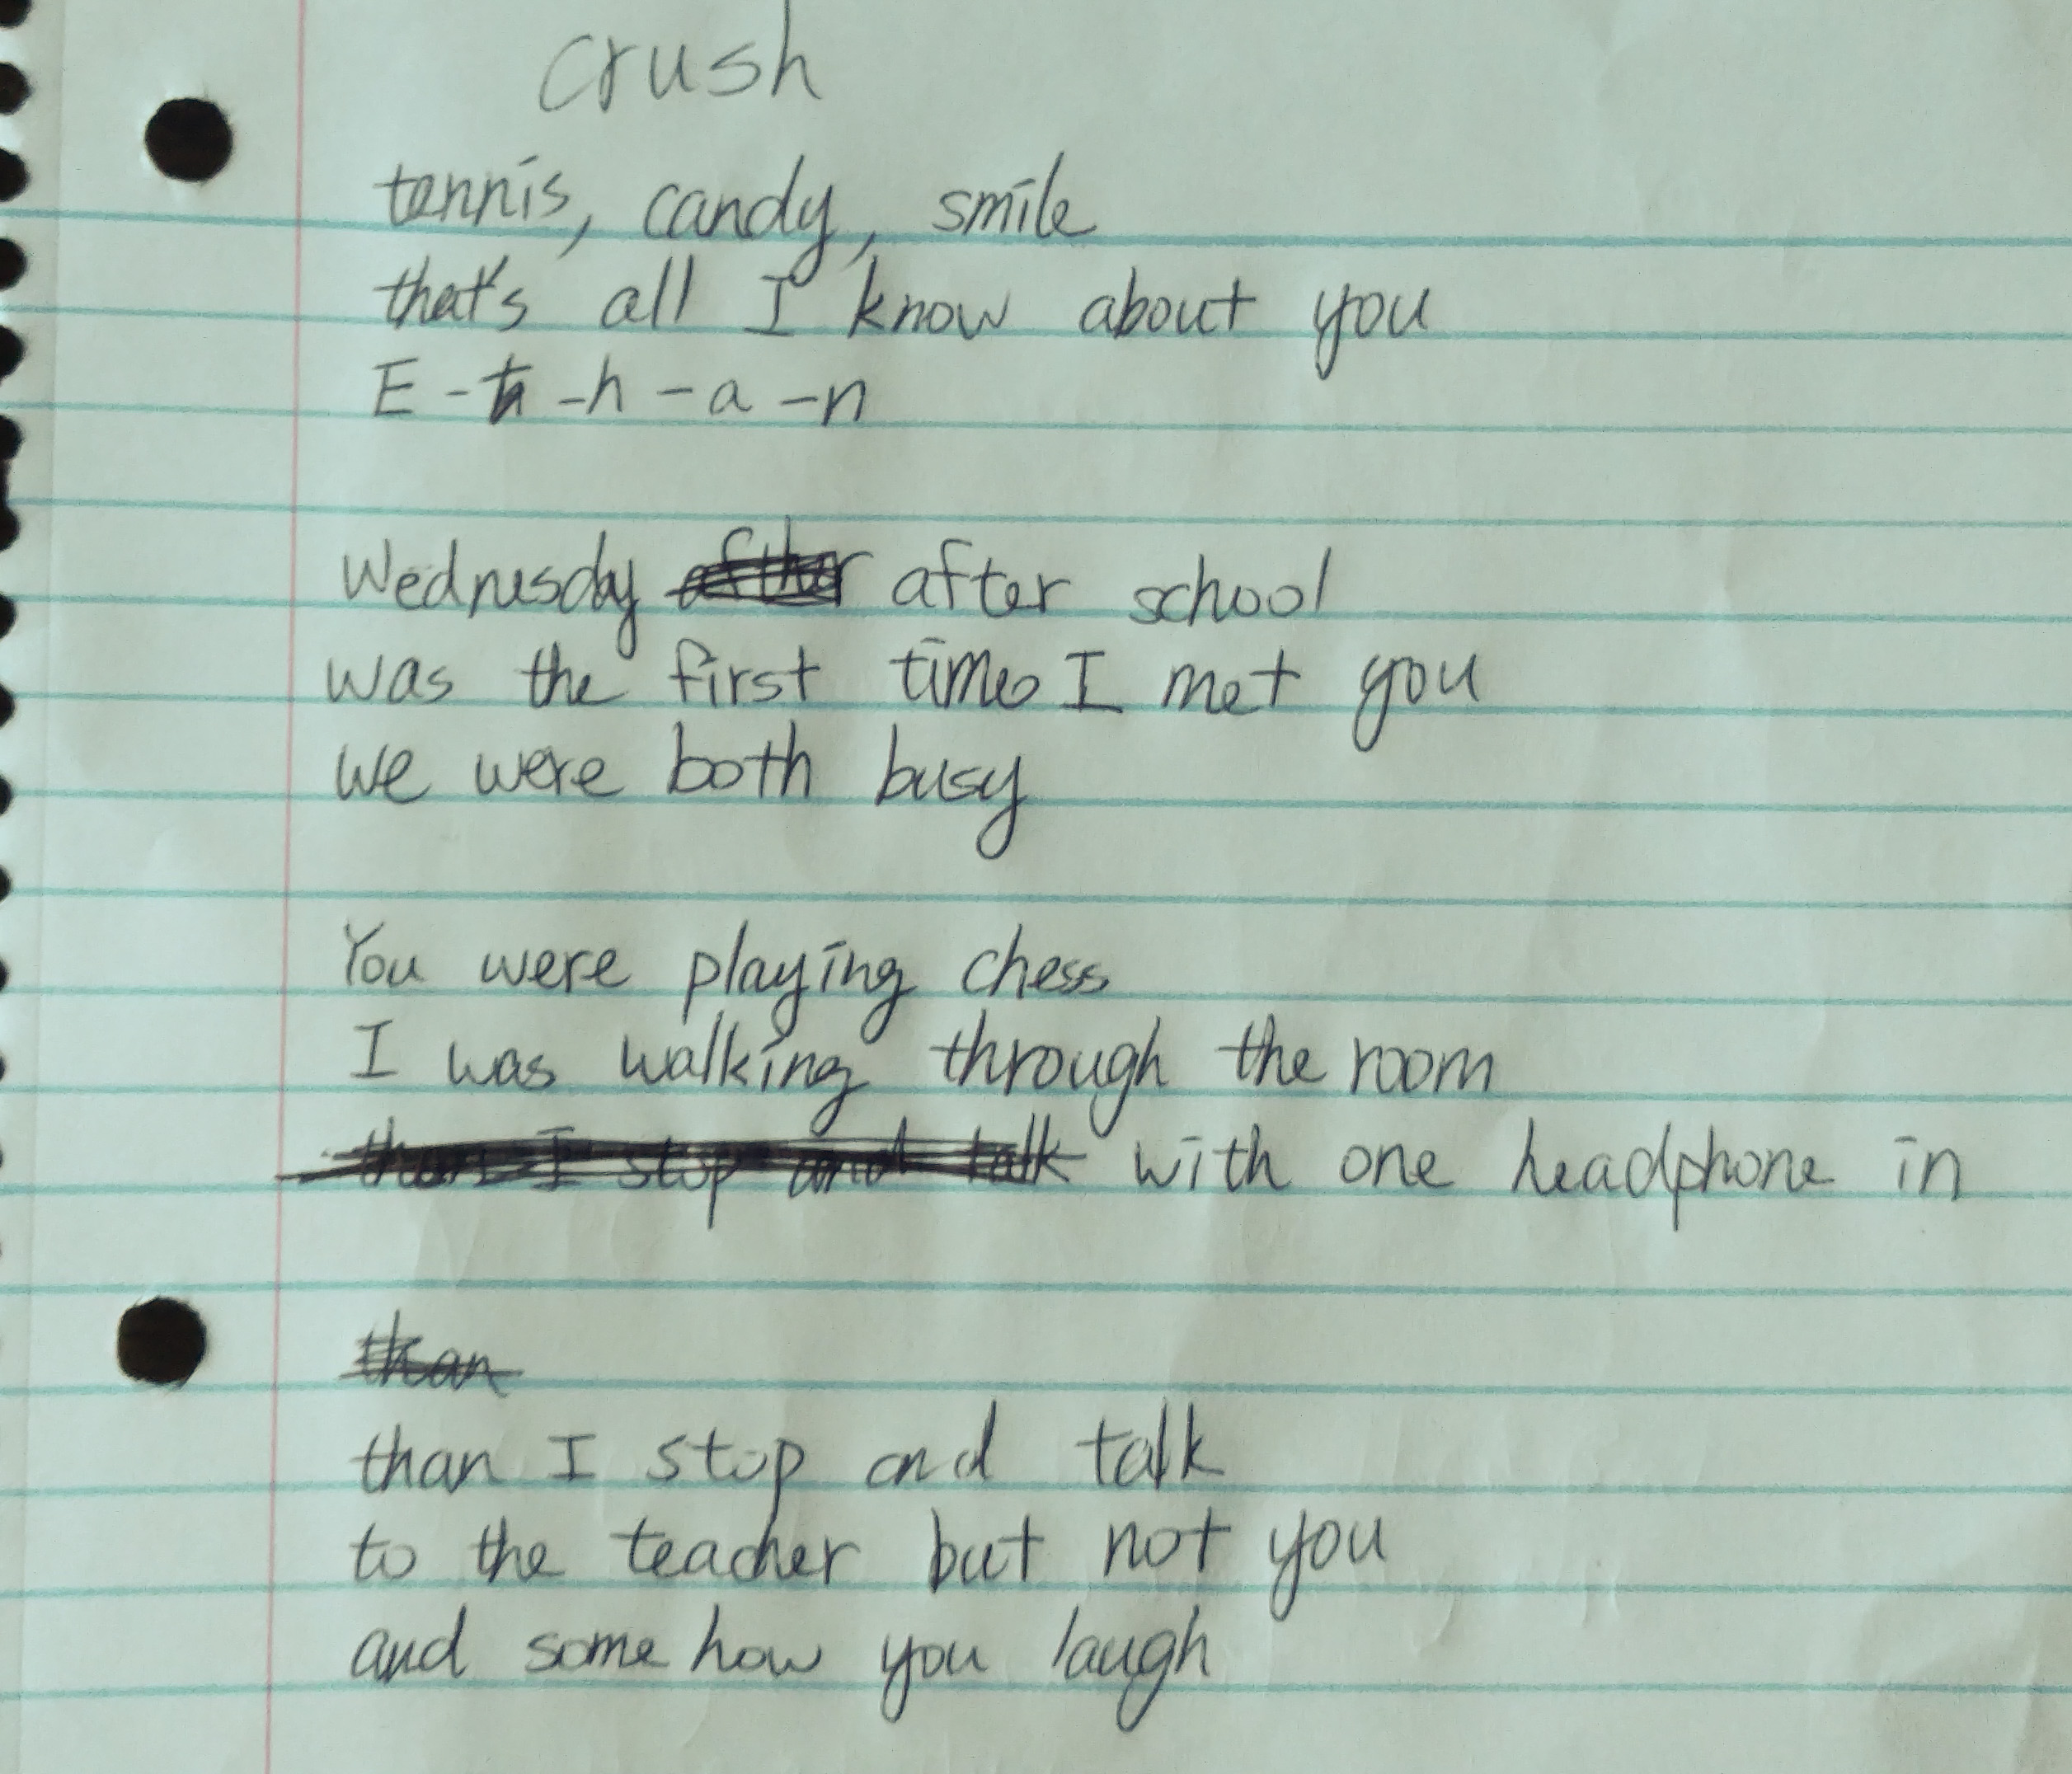 crush
tennis, candy, smile
that's all I know about you
E-t-h-a-n
Wednesday after school
was the first time I met you
we were both busy
You were playing chess
I was walking through the room
than I stop and talk with one headphone in
than
than I stop and talk
to the teacher but not you
and some how you laugh